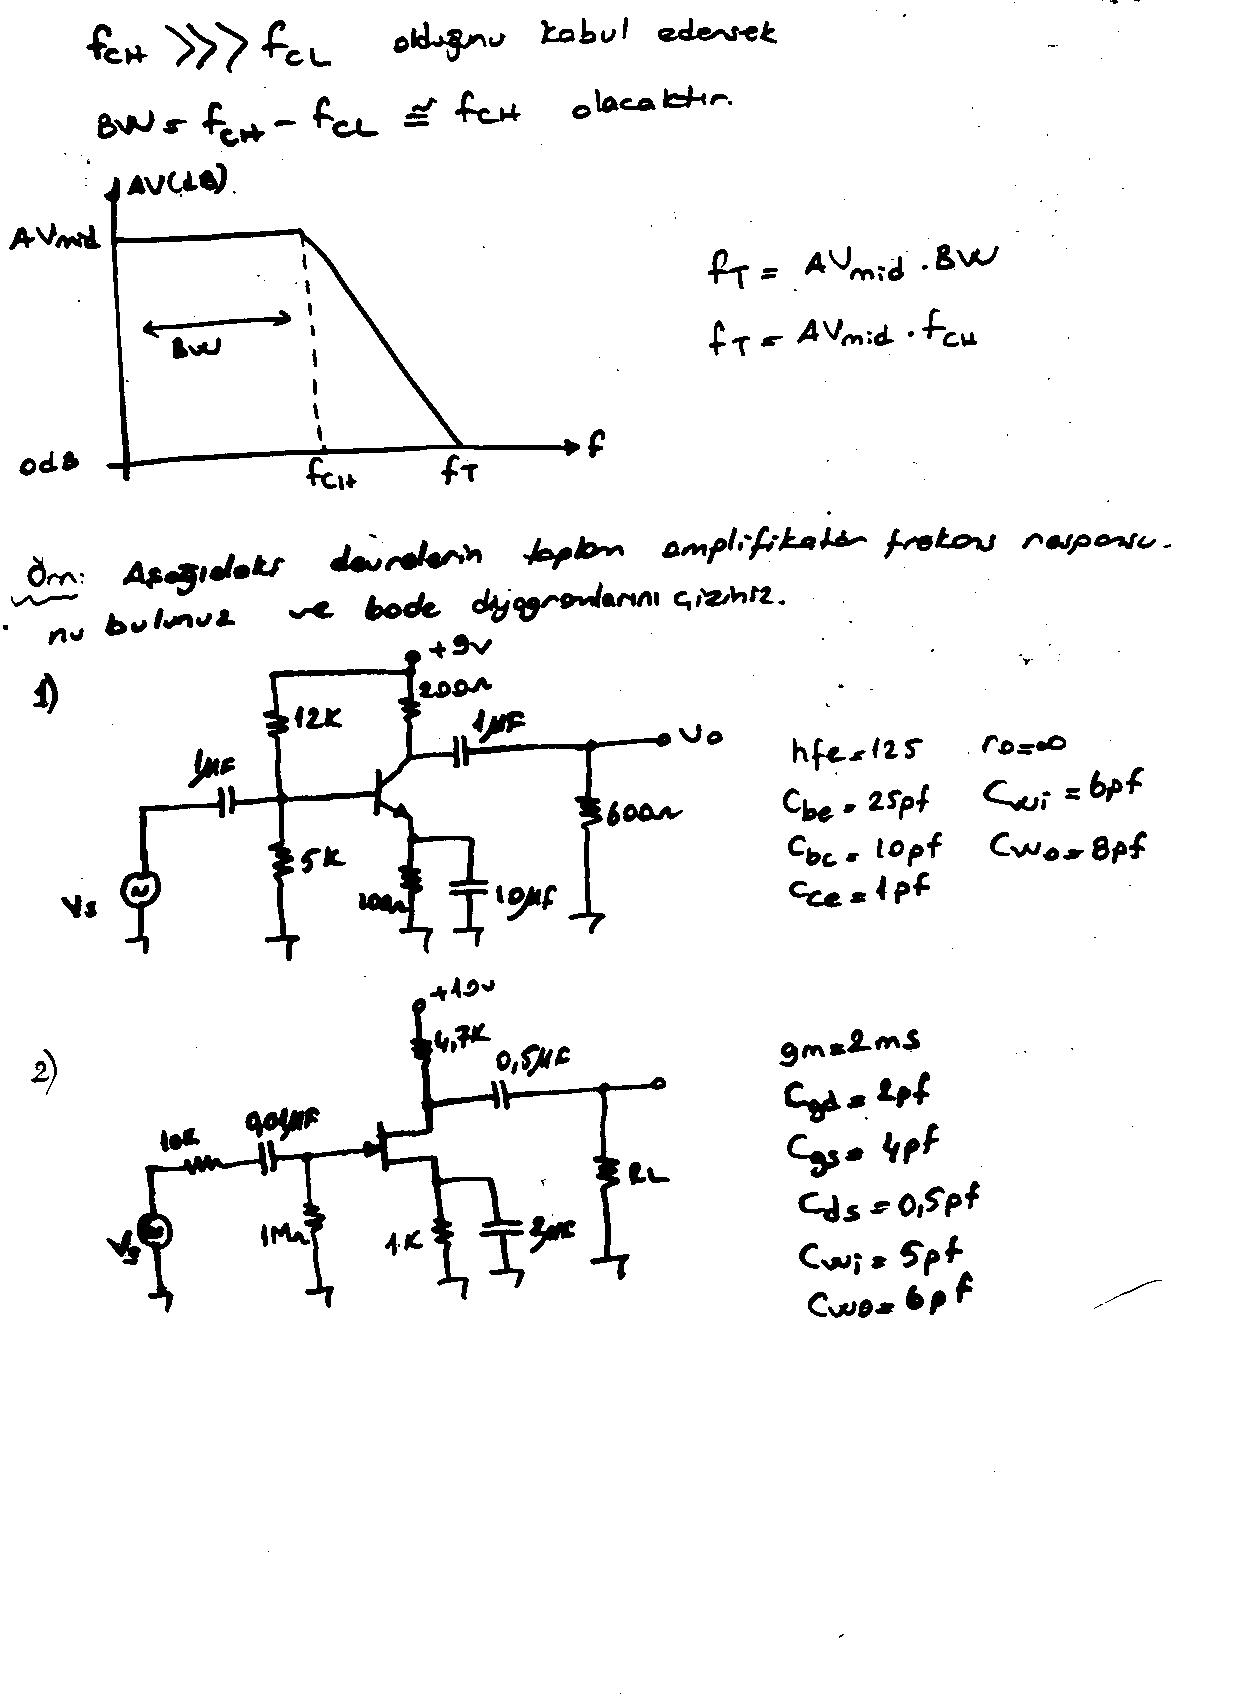 fCH >>> fCL olduğunu kabul edersek
BW = fCH - fCL ≅ fCH olacaktır.
AV(dB)
AVmid
BW
0dB
fCH
fT
f
fT = AVmid . BW
fT = AVmid . fCH
Örn: Aşağıdaki devrelerin toplam amplifikatör frekans responsu-
nu bulunuz ve bode diyagramlarını çiziniz.
1)
+9v
200Ω
12K
1µF
1µF
Vo
5K
600Ω
100Ω
10µF
Vs
hfe = 125 ro = ∞
Cbe = 25pf Cwi = 6pf
Cbc = 10pf Cwo = 8pf
Cce = 1pf
2)
4,7K
0,5µF
10K
0,01µF
RL
1MΩ
1K
2µF
gm = 2ms
Cgd = 2pf
Cgs = 4pf
Cds = 0,5pf
Cwi = 5pf
Cwo = 6pf